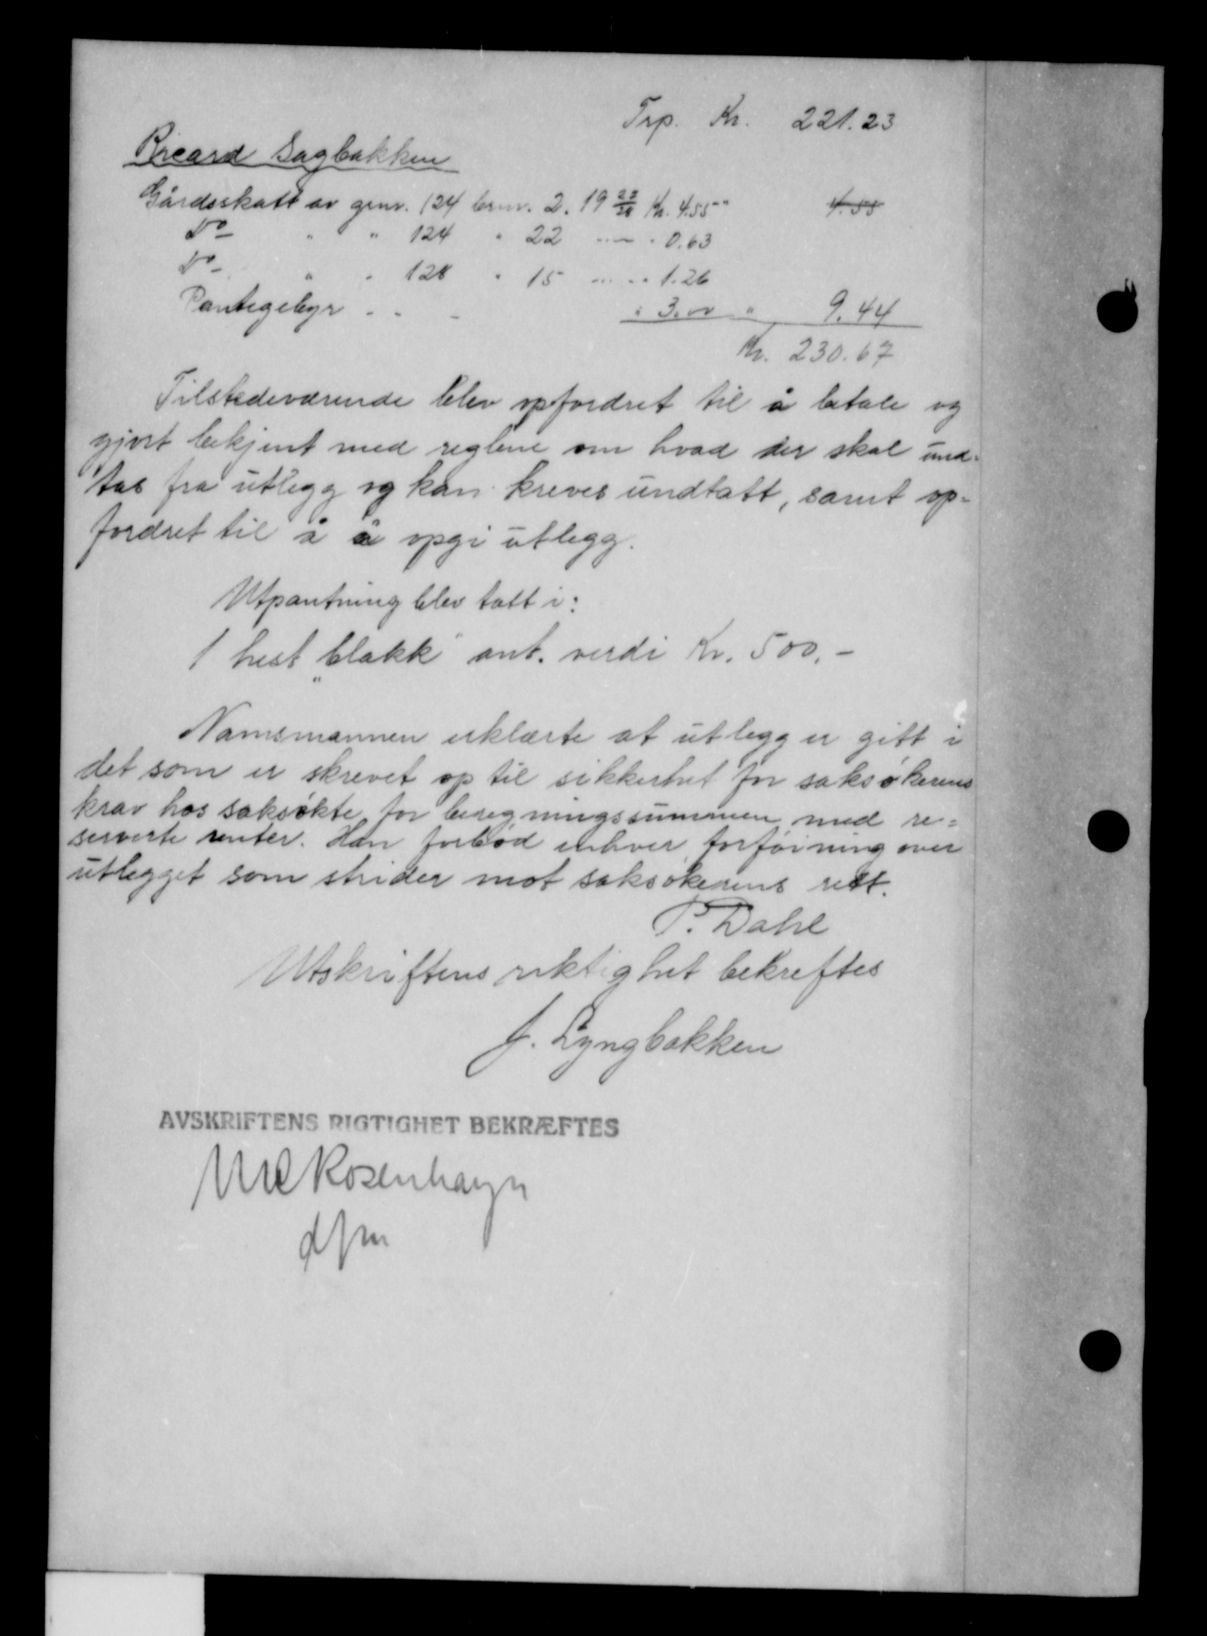 Trp. Kr. 221.23
Ricard Sagbakken
Gårdsskatt av gnr. 124 brnr. 2. 19 Kr. 4.55 " 4.55
Do " " 124 " 22 " 0.63
Do " " 128 " 15 " 1.26
Pantegebyr - - - " 3.00 " 9.44
Kr. 230.67
Tilstedeværende blev opfordret til å betale og
gjort bekjent med reglene om hvad der skal und-
tas fra utlegg og kan kreves undtatt, samt op-
fordret til å å opgi utlegg.
Utpantning blev tatt i:
1 hest „blakk" ant. verdi Kr. 500.-
Namsmannen erklærte at utlegg er gitt i
det som er skrevet op til sikkerhet for saksøkerens
krav hos saksøkte for beregningssummen med re=
serverte renter. Han forbød enhver forføining over
utlegget som strider mot saksøkerens rett.
P. Dahl
Utskriftens riktighet bekreftes
J. Lyngbakken
AVSKRIFTENS RIGTIGHET BEKRÆFTES
Rosenhayn